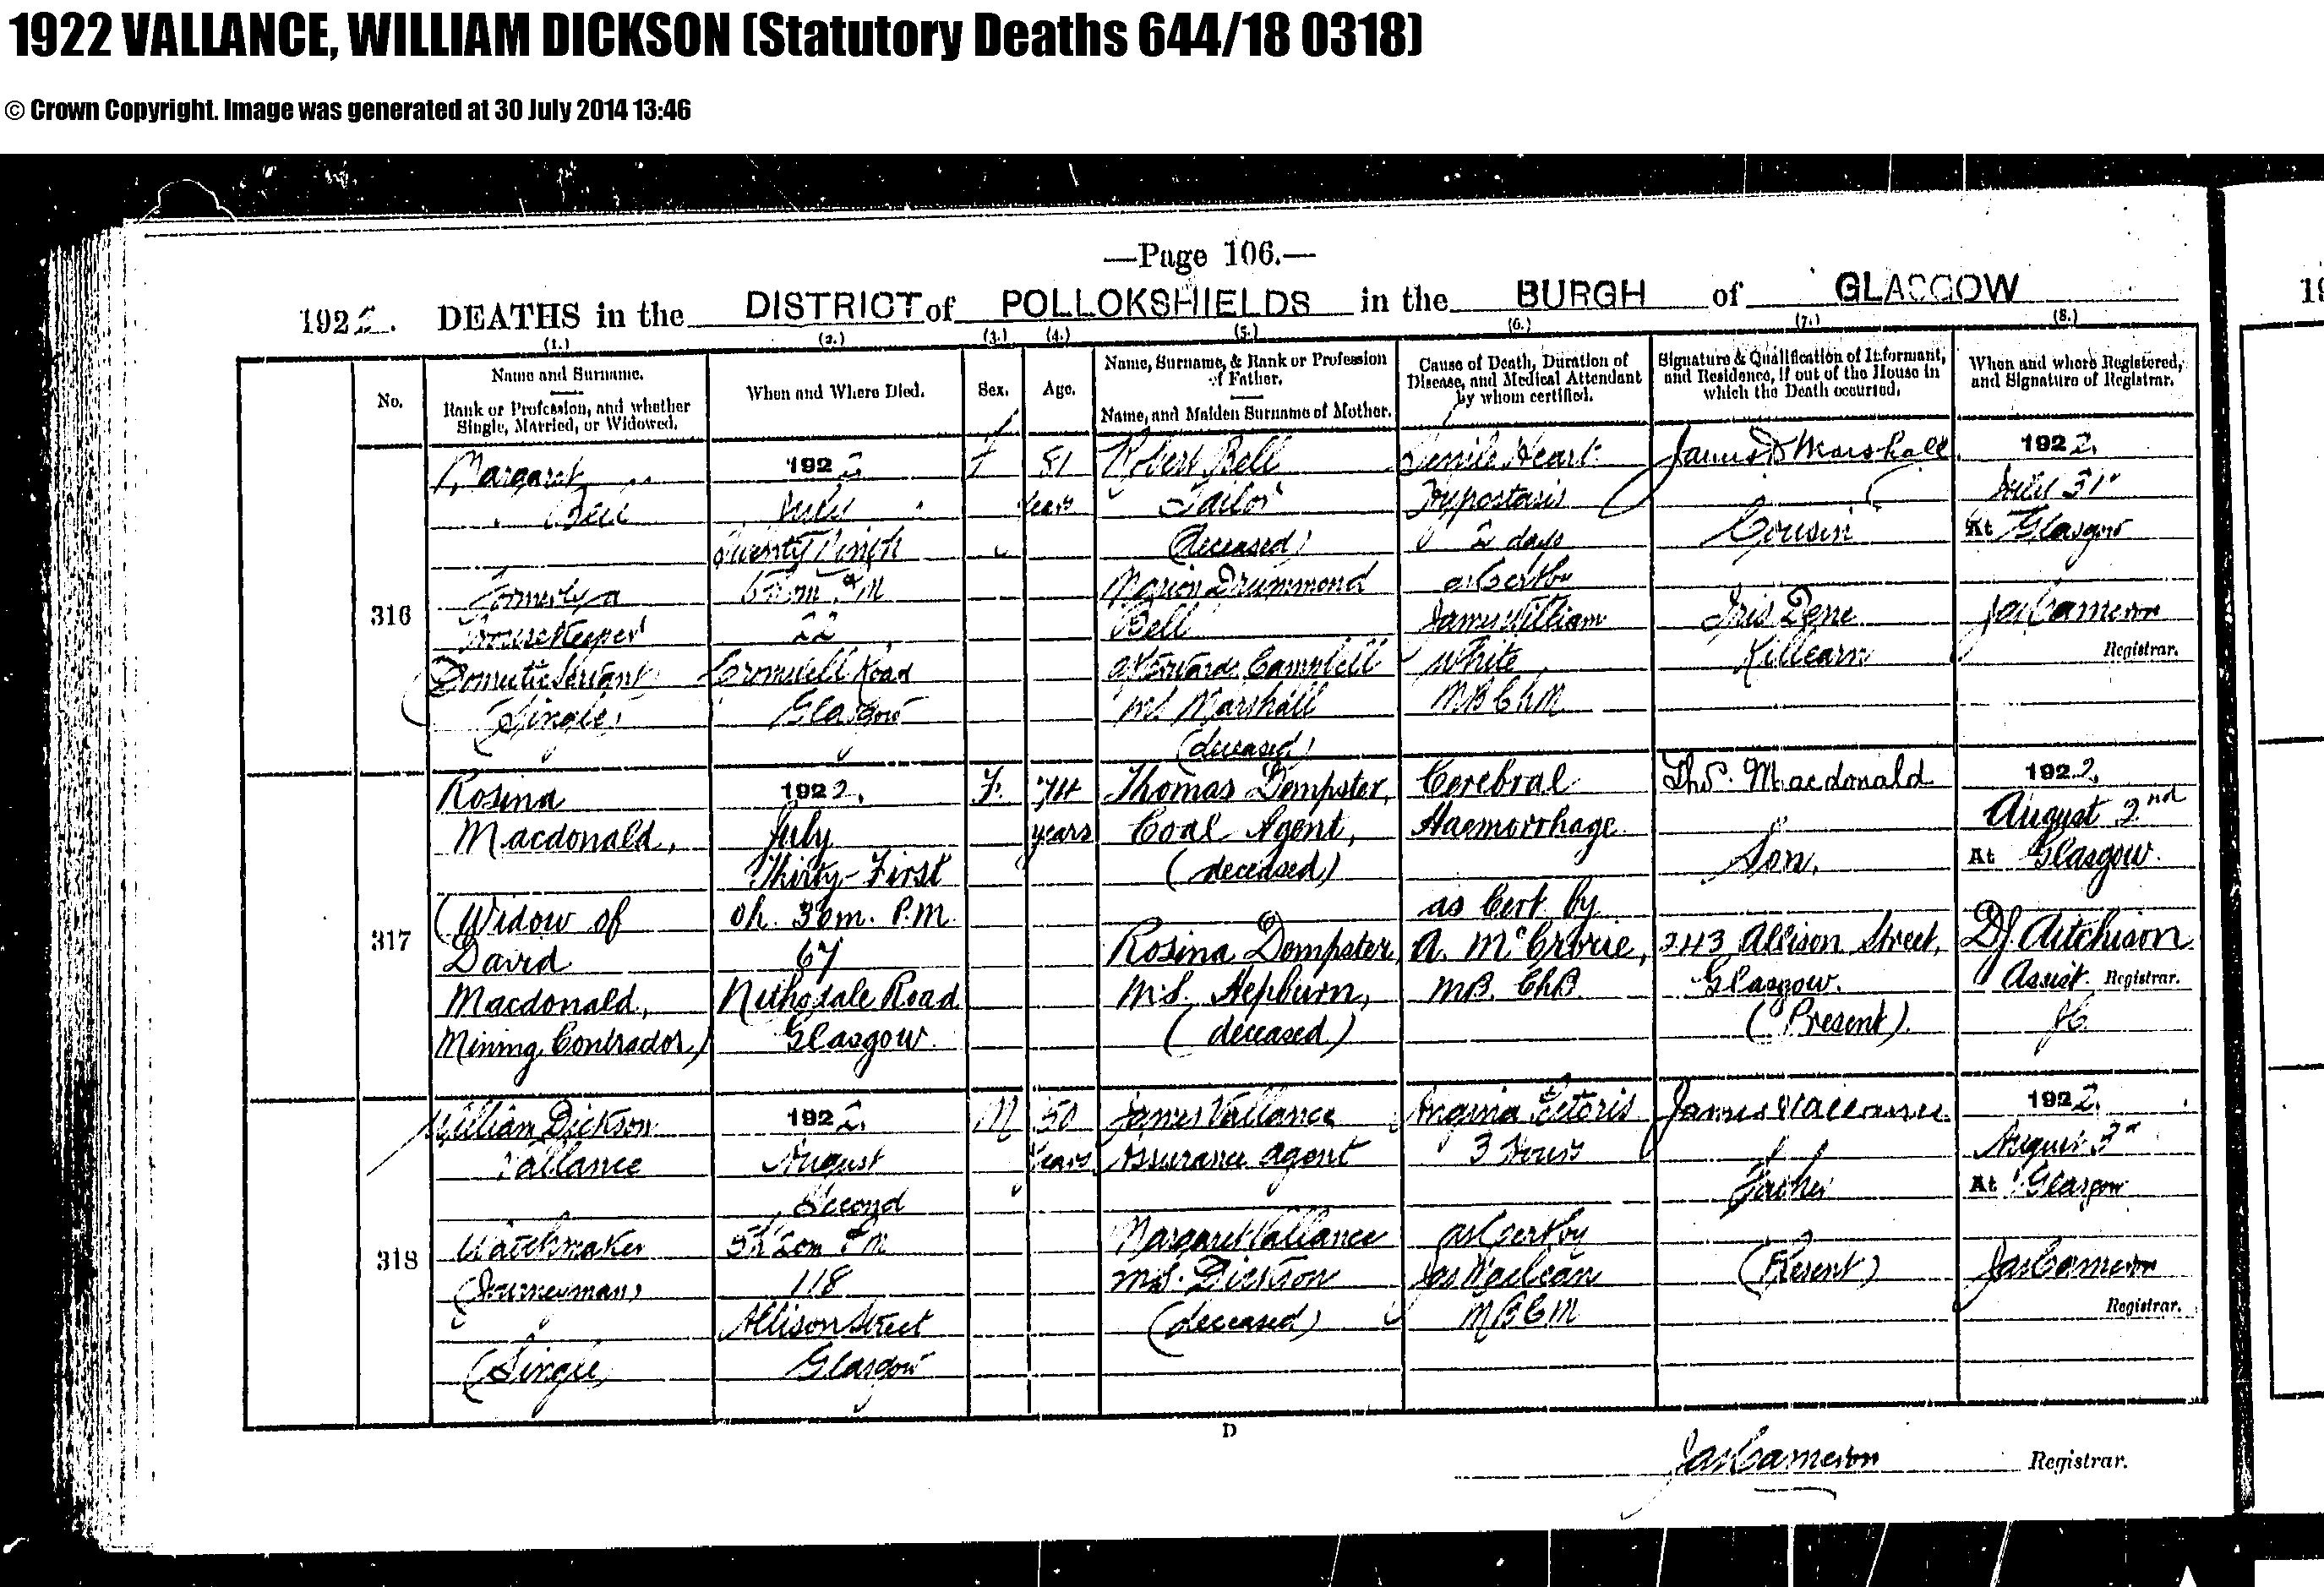 1922 VALLANCE, WILLIAM DICKSON (Statutory Deaths 644/18 0318)
© Crown Copyright. Image was generated at 30 July 2014 13:46
—Page 106.—
1922. DEATHS in the DISTRICT of POLLOKSHIELDS in the BURGH of GLASGOW
(1.) (2.) (3.) (4.) (5.) (6.) (7.) (8.)
No.
Name and Surname.
Rank or Profession, and whether
Single, Married, or Widowed.
When and Where Died.
Sex.
Age.
Name, Surname, & Rank or Profession
of Father.
Name, and Maiden Surname of Mother.
Cause of Death, Duration of
Disease, and Medical Attendant
by whom certified.
Signature & Qualification of Informant,
and Residence, if out of the House in
which the Death occurred.
When and where Registered,
and Signature of Registrar.
316
Margaret
Bell
Formerly a
Housekeeper
Domestic Servant
(Single)
1922
July
Twenty Ninth
M
22
Cromwell Road
Glasgow
F
81
Years
Robert Bell
Tailor
(deceased)
Marion Drummond
Bell
afterwards Campbell
M.S. Marshall
(deceased)
Senile Heart
Hypostasis
2 days
as Cert by
James William
White
M.B. Ch M
James D Marshall
Cousin
Iris Dene
Killearn
1922.
July 31st
At Glasgow
Jas Cameron
Registrar.
317
Rosina
Macdonald,
(Widow of
David
Macdonald,
Mining Contractor)
1922.
July
Thirty-First
0h. 30m. P.M.
67
Nithsdale Road
Glasgow.
F.
74
years
Thomas Dempster,
Coal Agent,
(deceased)
Rosina Dempster,
M.S. Hepburn,
(deceased)
Cerebral
Haemorrhage.
as Cert by
A. McCrorie,
M.B. Ch.B.
Thos. Macdonald
Son.
243 Allison Street,
Glasgow.
(Present).
1922.
August 2nd
At Glasgow.
D. J. Aitchison
Assist. Registrar.
JC
318
William Dickson
Vallance
Watchmaker
(Journeyman)
(Single)
1922.
August
Second
5h 20m P M
118
Allison Street
Glasgow
M
50
Years
James Vallance
Assurance Agent
Margaret Vallance
M.S. Dickson
(deceased)
Angina Pectoris
3 Hours
as Cert by
Jas Maclean
M B C M
James Vallance
Father
(Present)
1922.
August 3rd
At Glasgow
Jas Cameron
Registrar.
D
Jas Cameron Registrar.